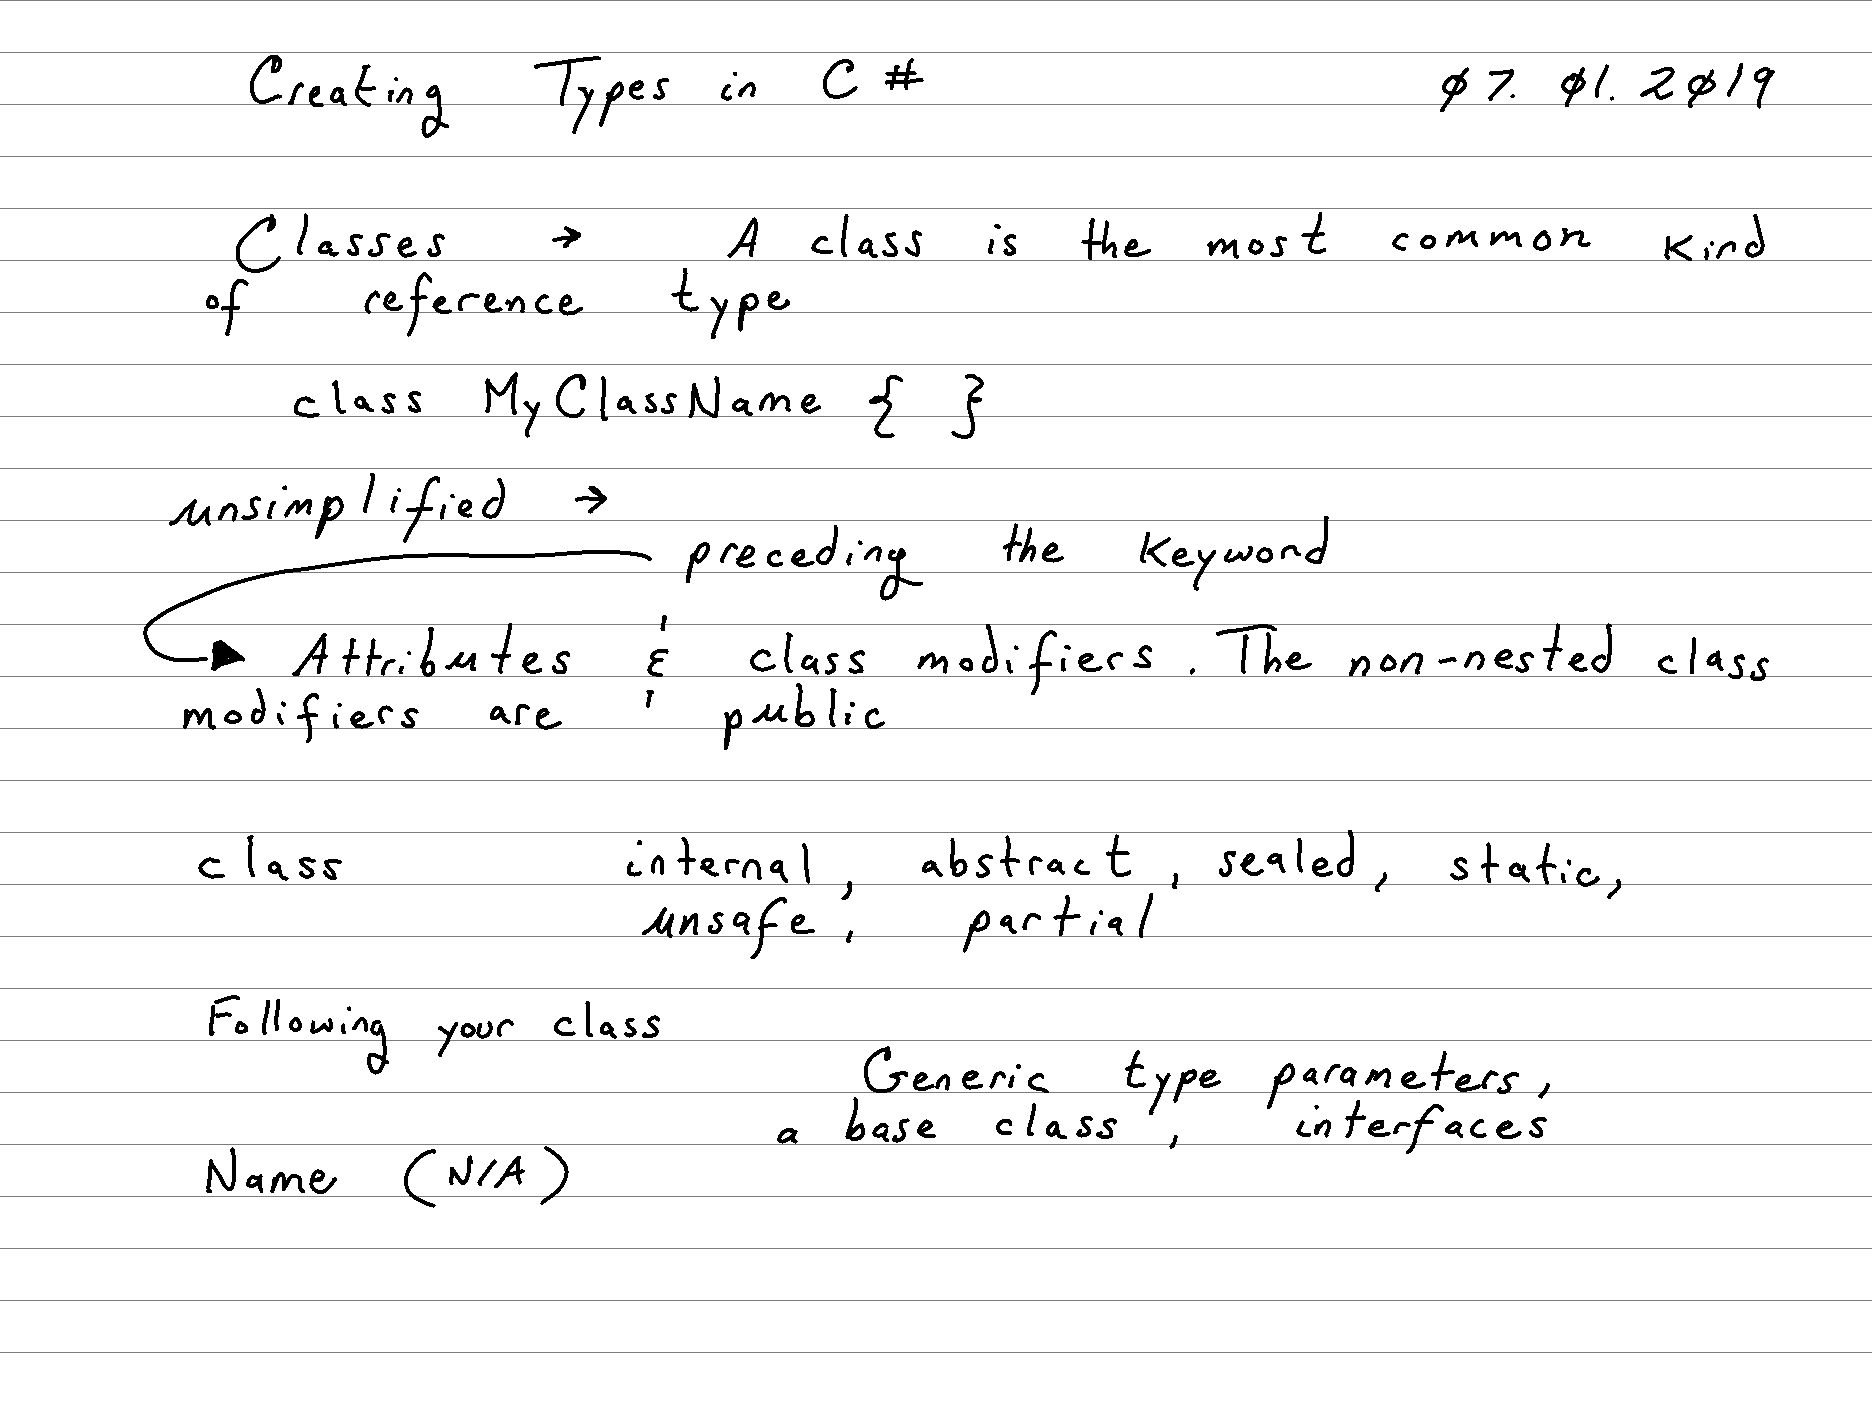 Creating Types in C# 07.01.2019
Classes → A class is the most common kind
of reference type
class MyClassName { }
unsimplified →
preceding the keyword
Attributes & class modifiers. The non-nested class
modifiers are public
class internal, abstract, sealed, static,
unsafe, partial
Following your class
Generic type parameters,
a base class, interfaces
Name (N/A)